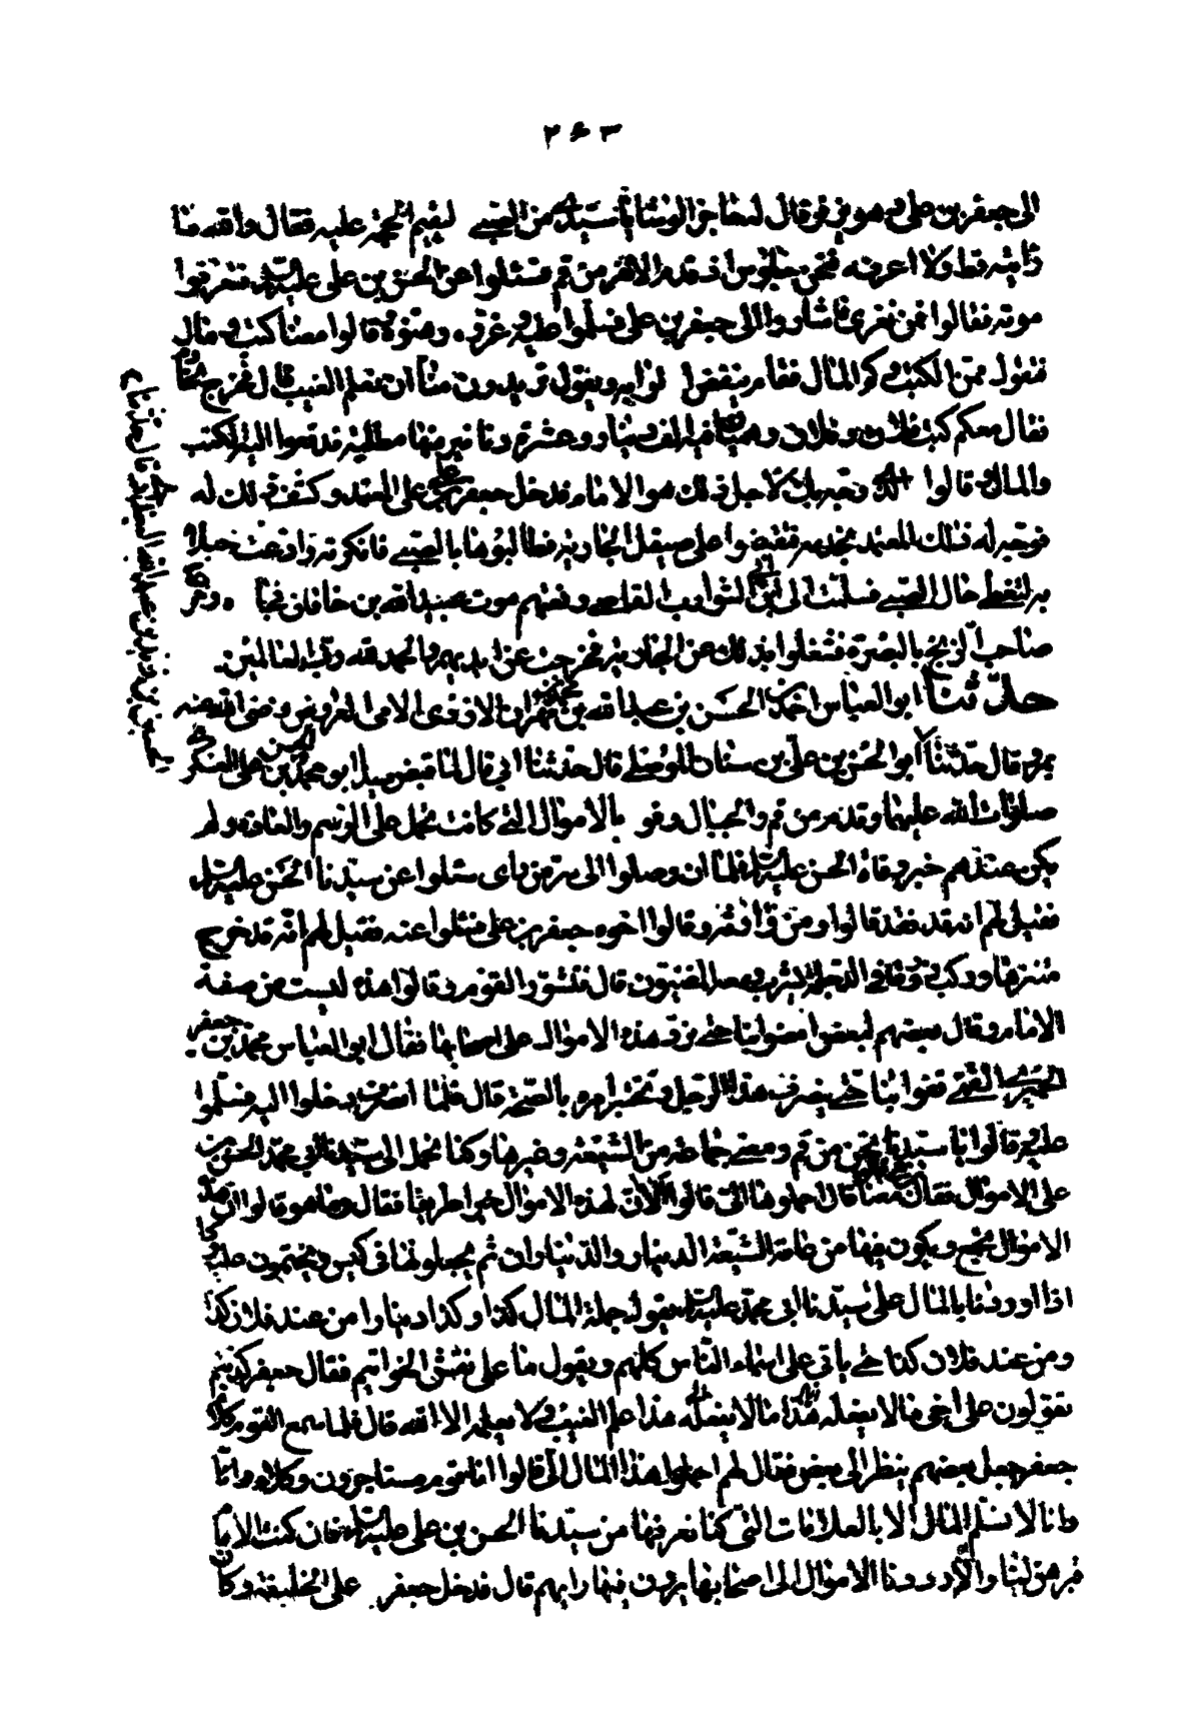 ٢٤٣
الى جعفر بن على وهو يزفر قال له حاجز الوشا يا سيدى من الصبى ليقيم الحجة عليه فقال والله ما
رايته قط ولا اعرفه فنحن جلوس اذ قدم نفر من قم فسئلوا عن الحسن بن على عليه السلام فعرفوا
موته فقالوا فمن نعزى فاشاروا الى جعفر بن على فسلموا عليه وعزوه وهنوه وقالوا معنا كتب ومال
فتقول ممن الكتب وكم المال فقام ينفض اثوابه ويقول تريدون منا ان نعلم الغيب قال فخرج الخادم
فقال معكم كتب فلان وفلان وهميان فيه الف دينار وعشرة دنانير منها مطلية فدفعوا اليه الكتب
والمال وقالوا الذى وجه بك لاجل ذلك هو الامام فدخل جعفر بن على على المعتمد وكشف ذلك له
فوجه له المعتمد بخدمه فقبضوا على صيقل الجارية فطالبوها بالصبى فانكرته وادعت حبلا
بها لتغطى حال الصبى فسلمت الى ابن ابى الشوارب القاضى وبغتهم موت عبيد الله بن خاقان فجأة وخروج
صاحب الزنج بالبصرة فشغلوا بذلك عن الجارية فخرجت عن ايديهم والحمد لله رب العالمين
حدثنا ابو العباس احمد بن الحسين بن عبد الله بن محمد بن مهران الابى الازدى العروضى رضى الله عنه
بمرو قال حدثنا ابو الحسين بن على بن سنان الموصلى قال حدثنا ابى قال لما قبض سيدنا ابو محمد الحسن بن على العسكرى
صلوات الله عليهما وقدم من قم والجبال وفود بالاموال التى كانت تحمل على الرسم والعادة ولم
يكن عندهم خبر وفاة الحسن عليه السلام فلما ان وصلوا الى سر من راى سئلوا عن سيدنا الحسن عليه السلام
فقيل لهم انه قد فقد قالوا ومن وارثه قالوا اخوه جعفر بن على فسئلوا عنه فقيل لهم انه قد خرج
متنزها وركب زورقا فى الدجلة يشرب ومعه المغنون قال فتشور القوم وقالوا هذه ليست من صفة
الامام وقال بعضهم لبعض امضوا بنا حتى نرد هذه الاموال على اصحابها فقال ابو العباس محمد بن جعفر
الحميرى القمى قفوا بنا حتى ينصرف هذا الرجل ونختبر امره بالصحة قال فلما انصرف دخلوا اليه فسلموا
عليه وقالوا يا سيدنا نحن من قم ومعنا جماعة من الشيعة وغيرها وكنا نحمل الى سيدنا ابى محمد الحسن بن
على الاموال فقال واين هى قالوا معنا قال احملوها الى قالوا ان لهذه الاموال خبرا طريفا فقال وما هو قالوا ان هذه
الاموال تجمع ويكون فيها من عامة الشيعة الدينار والديناران ثم يجعلونها فى كيس ويختمون عليه وكنا
اذا وردنا بالمال على سيدنا ابى محمد عليه السلام يقول جملة المال كذا وكذا دينارا من عند فلان كذا
ومن عند فلان كذا حتى ياتى على اسماء الناس كلهم ويقول ما على نقش الخواتيم فقال جعفر كذبتم
تقولون على اخى ما لا يفعله هذا علم الغيب ولا يعلمه الا الله قال فلما سمع القوم كلام
جعفر جعل بعضهم ينظر الى بعض فقال لهم احملوا هذا المال الى قالوا انا قوم مستاجرون وكلاء وانا
وانا لا نسلم المال الا بالعلامات التى كنا نعرفها من سيدنا الحسن بن على عليه السلام فان كنت الامام
فبرهن لنا والا رددنا الاموال الى اصحابها يرون فيها رايهم قال فدخل جعفر على الخليفة وكان